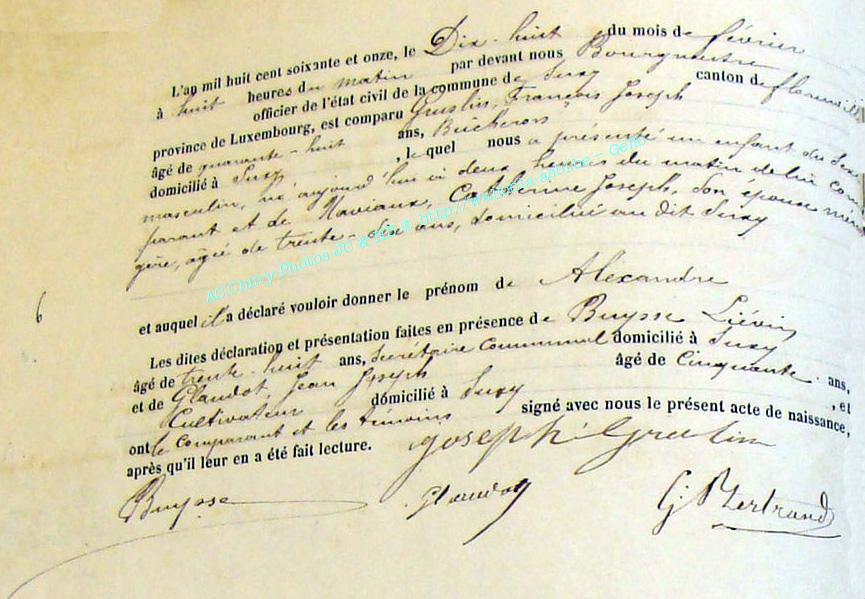 L'an mil huit cent soixante et onze, le Dix-huit du mois de février
à huit heures du matin par devant nous Bourgmestre
officier de l'état civil de la commune de Suxy canton de florenville
province de Luxembourg, est comparu Gruslin, François Joseph
âgé de quarante-huit ans, Bûcheron
domicilié à Suxy, lequel nous a présenté un enfant du sexe
masculin, né aujourd'hui à deux heures du matin de lui com
parant et de Naviaux, Catherine Joseph, son épouse mena
gère, agée de trente-six ans, domiciliée au dit Suxy
et auquel il a déclaré vouloir donner le prénom de Alexandre
6
Les dites déclaration et présentation faites en présence de Buysse Liévin
âgé de trente-huit ans, Secrétaire communal domicilié à Suxy
et de Glaudot, Jean Joseph âgé de Cinquante ans,
Cultivateur domicilié à Suxy, et
ont le comparant et les témoins signé avec nous le présent acte de naissance,
après qu'il leur en a été fait lecture.
joseph Gruslin
Buysse Glaudot Bertrand